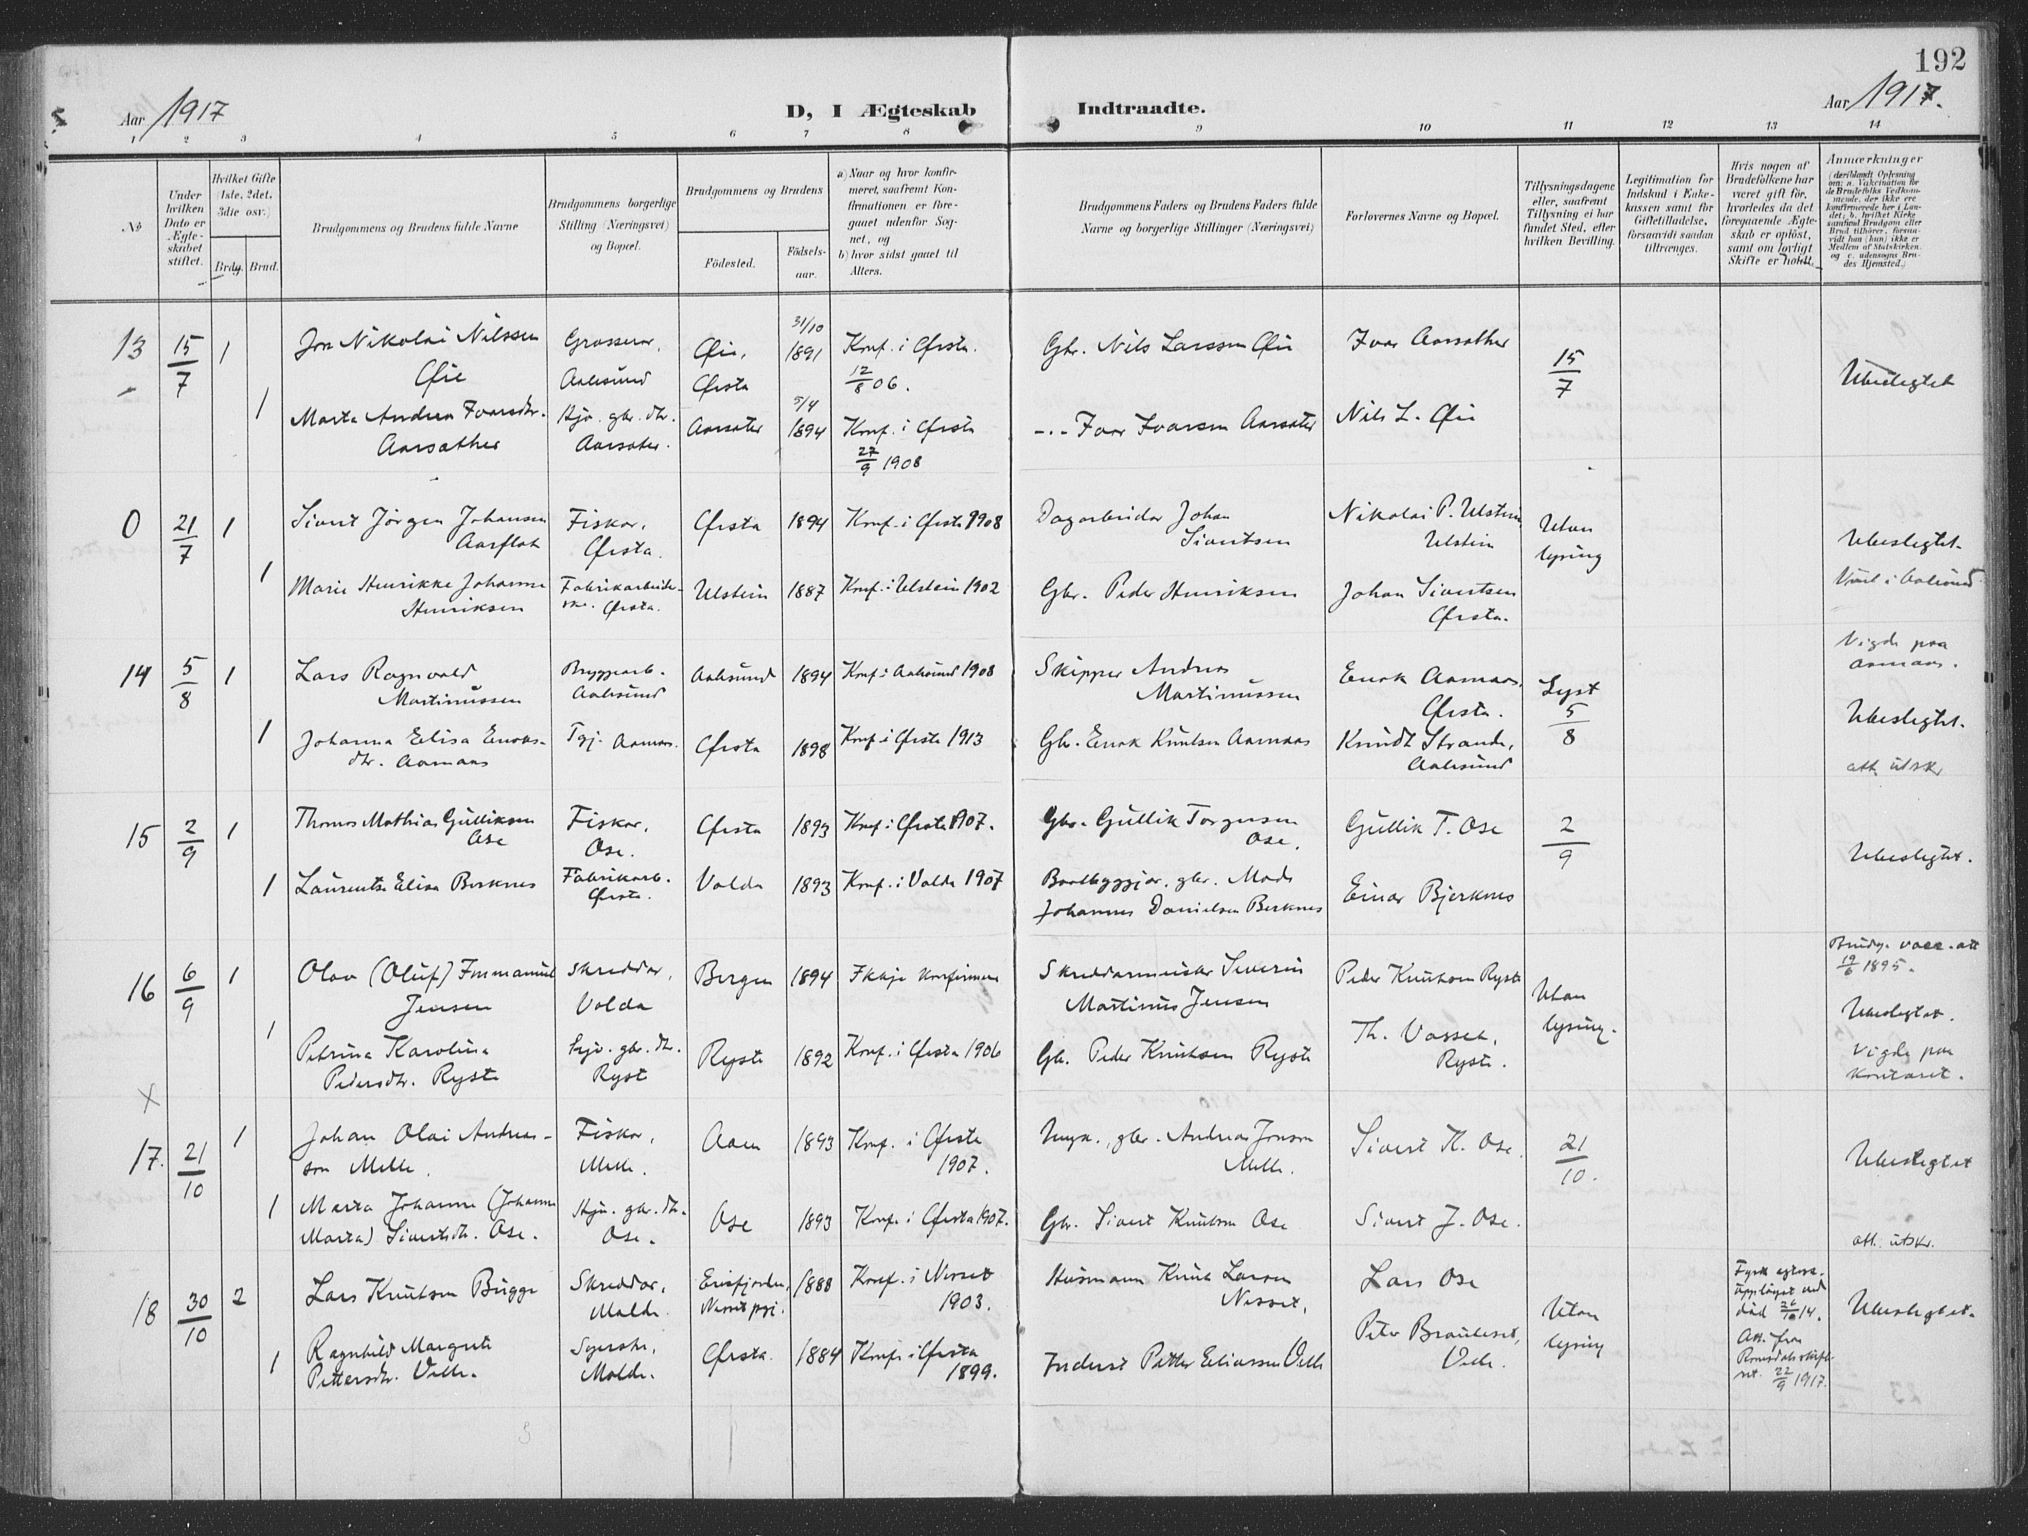 192
Aar 1917
D, I Ægteskab Indtraadte.
Aar 1917.
1 2 3 4 5 6 7 8 9 10 11 12 13 14
No
Under hvilken Dato er Ægteskabet stiftet.
Hvilket Gifte (1ste, 2det, 3die osv.)
Brdg. Brud.
Brudgommens og Brudens fulde Navne
Brudgommens borgerlige Stilling (Næringsvei) og Bopæl.
Brudgommens og Brudens
Födested.
Födselsaar.
a) Naar og hvor konfirmeret, saafremt Konfirmationen er foregaaet udenfor Sognet, og
b) hvor sidst gaaet til Alters.
Brudgommens Faders og Brudens Faders fulde Navne og borgerlige Stillinger (Næringsvei)
Forlovernes Navne og Bopæl.
Tillysningsdagene eller, saafremt Tillysning ei har fundet Sted, efter hvilken Bevilling.
Legitimation for Indskud i Enkekassen samt for Giftetilladelse, forsaavidt saadan tiltrænges.
Hvis nogen af Brudefolkene har været gift för, hvorledes da det foregaaende Ægteskab er oplöst, samt om lovligt Skifte er holdt.
Anmærkninger
(deriblandt Oplysning om: a. Vakcination for de Brudefolks Vedkommende, der ikke ere konfirmerede her i Landet; b. hvilket Kirkesamfund Brudgom eller Brud tilhörer, forsaavidt han (hun) ikke er Medlem af Statskirken, og c. udensogns Brudes Hjemsted.)
13 15/7 1 Jon Nikolai Nilssen Øie Grosserer, Aalesund Øie, Ørsta 31/10 1891 Konf. i Ørsta 12/8 06. Gbr. Nils Larssen Øie Ivar Aarsæther 15/7 Ubeslegtet
1 Marta Andrea Ivarsdtr. Aarsæther Hjv. gbr. dtr. Aarsæter. Aarsæter 5/4 1894 Konf. i Ørsta 27/9 1908 -.- Ivar Ivarsen Aarsæter Nils L. Øie
0 21/7 1 Sivert Jørgen Johansen Aarflot Fiskar, Ørsta. Ørsta 1894 Konf. i Ørsta 1908 Dagarbeider Johan Sivertsen Nikolai P. Ulstein, Ulstein Utan lysing Ubeslegtet.
1 Marie Henrikke Johanne Henriksen Fabrikarbeiderske. Ørsta. Ulstein 1887 Konf. i Ulstein 1902 Gbr. Peder Henriksen Johan Sivertsen Ørsta. Viet i Aalesund.
14 5/8 1 Lars Ragnvald Martinussen Bryggearb. Aalesund Aalesund 1894 Konf. i Aalesund 1908 Skipper Andreas Martinussen Enok Aamaas, Ørsta. Lyst 5/8 Vigde paa Aamaas.
Ubeslegtet.
1 Johanna Elisa Enoksdtr. Aamaas Tgj. Aamaas. Ørsta 1898 Konf. i Ørsta 1913 Gbr. Enok Knutsen Aamaas Knudt Strande, Aalesund att. utskr
15 2/9 1 Thomas Mathias Gulliksen Ose Fiskar, Ose. Ørsta 1893 Konf. i Ørsta 1907. Gbr. Gullik Torgersen Ose. Gullik T. Ose 2/9 Ubeslegtet.
1 Laurentse Elisa Berknes Fabrikarb. Ørsta. Volda 1893 Konf. i Volda 1907 Baatbyggjar, gbr. Mads Johannes Danielsen Berknes Einar Bjerknes
16 6/9 1 Olav (Oluf) Emmanuel Jensen Skreddar, Volda Bergen 1894 Ikkje konfirmera Skreddarmeister Severin Martinius Jensen Peder Knutson Ryste Utan lysing. Brudg. vacc. att 19/6 1895.
Ubeslegtet.
1 Petrina Karolina Pedersdtr. Ryste Hjv. gbr. dtr. Ryst Ryste 1892 Konf. i Ørsta 1906 Gb. Peder Knutson Ryste Th. Vasset, Ryste. Vigde paa kontoret.
X
17. 21/10 1 Johan Olai Andreasson Melle. Fiskar, Melle. Aaen 1893 Konf. i Ørsta 1907. Ungk., gbr. Andreas Jonson Melle. Sivert K. Ose. 21/10. Ubeslegtet
1 Marta Johanne (Johanne Marta) Sivertsdtr. Ose. Hjv. gbr. dtr. Ose. Ose 1893 Konf. i Ørsta 1907. Gbr. Sivert Knutson Ose Sivert J. Ose. att. utskr.
18 30/10 2 Lars Knutson Bugge Skreddar, Molde. Eirisfjorden, Nesset pgj. 1888 Konf. i Nesset 1903. Husmann Knut Larsen Nesset. Lars Ose Utan lysing Fyrre egtesk. uppløyst ved død 26/10 14. Ubeslegtet.
1 Ragnhild Margrete Pettersdtr. Velle. Syerske, Molde. Ørsta. 1884 Konf. i Ørsta 1899. Inderst Petter Eliassen Velle Peter Brauteset, Velle. Att. fra Romsdal skifteret. 22/9 1917.